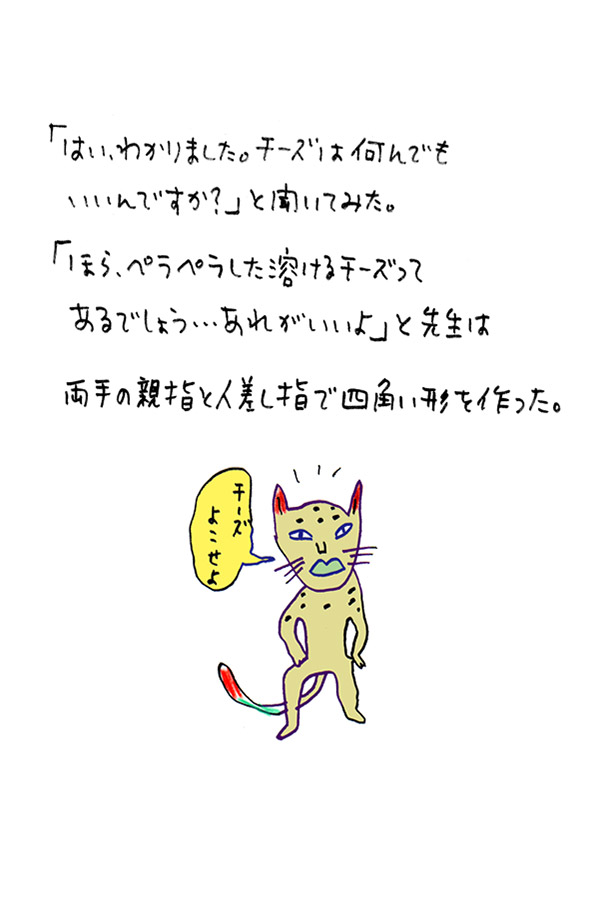 「はい、わかりました。チーズは何んでも
いいんですか？」と聞いてみた。
「ほら、ペラペラした溶けるチーズって
あるでしょう…あれがいいよ」と先生は
両手の親指と人差し指で四角い形を作った。
チーズ
よこせよ